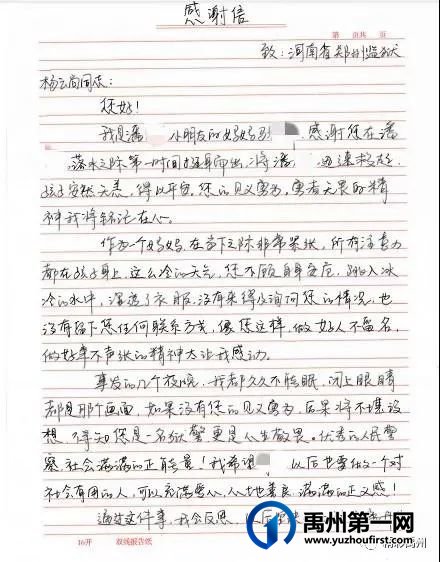 感谢信
第 页共 页
致：河南省郑州监狱
杨云尚同志：
您好！
我是潘 小朋友的妈妈 感谢您在潘
落水之际第一时间挺身而出，将潘 迅速救起
孩子安然无恙，得以平安。您的见义勇为，勇者无畏的精
神我将铭记在心。
作为一个妈妈，在当下之际非常紧张，所有注意力
都在孩子身上，这么冷的天气，您不顾自身安危，跳入冰
冷的水中，湿透了衣服，没有来得及询问您的情况，也
没有留下您任何联系方式，像您这样，做好人不留名，
做好事不声张的精神太让我感动。
事发的几个夜晚，我都久久不能眠，闭上眼睛
都是那个画面，如果没有您的见义勇为，后果将不堪设
想 得知您是一名狱警更是心生敬畏。优秀的人民警
察，社会满满的正能量！我希望 以后也要做一个对
社会有用的人，可以充满爱心，心地善良，满满的正义感！
通过这件事，我会反思，以后
16开 双线报告纸
禹州第一网
www.yuzhoufirst.com